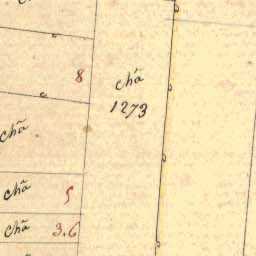 8
chã
1273
chã
chã 5
chã 3.6